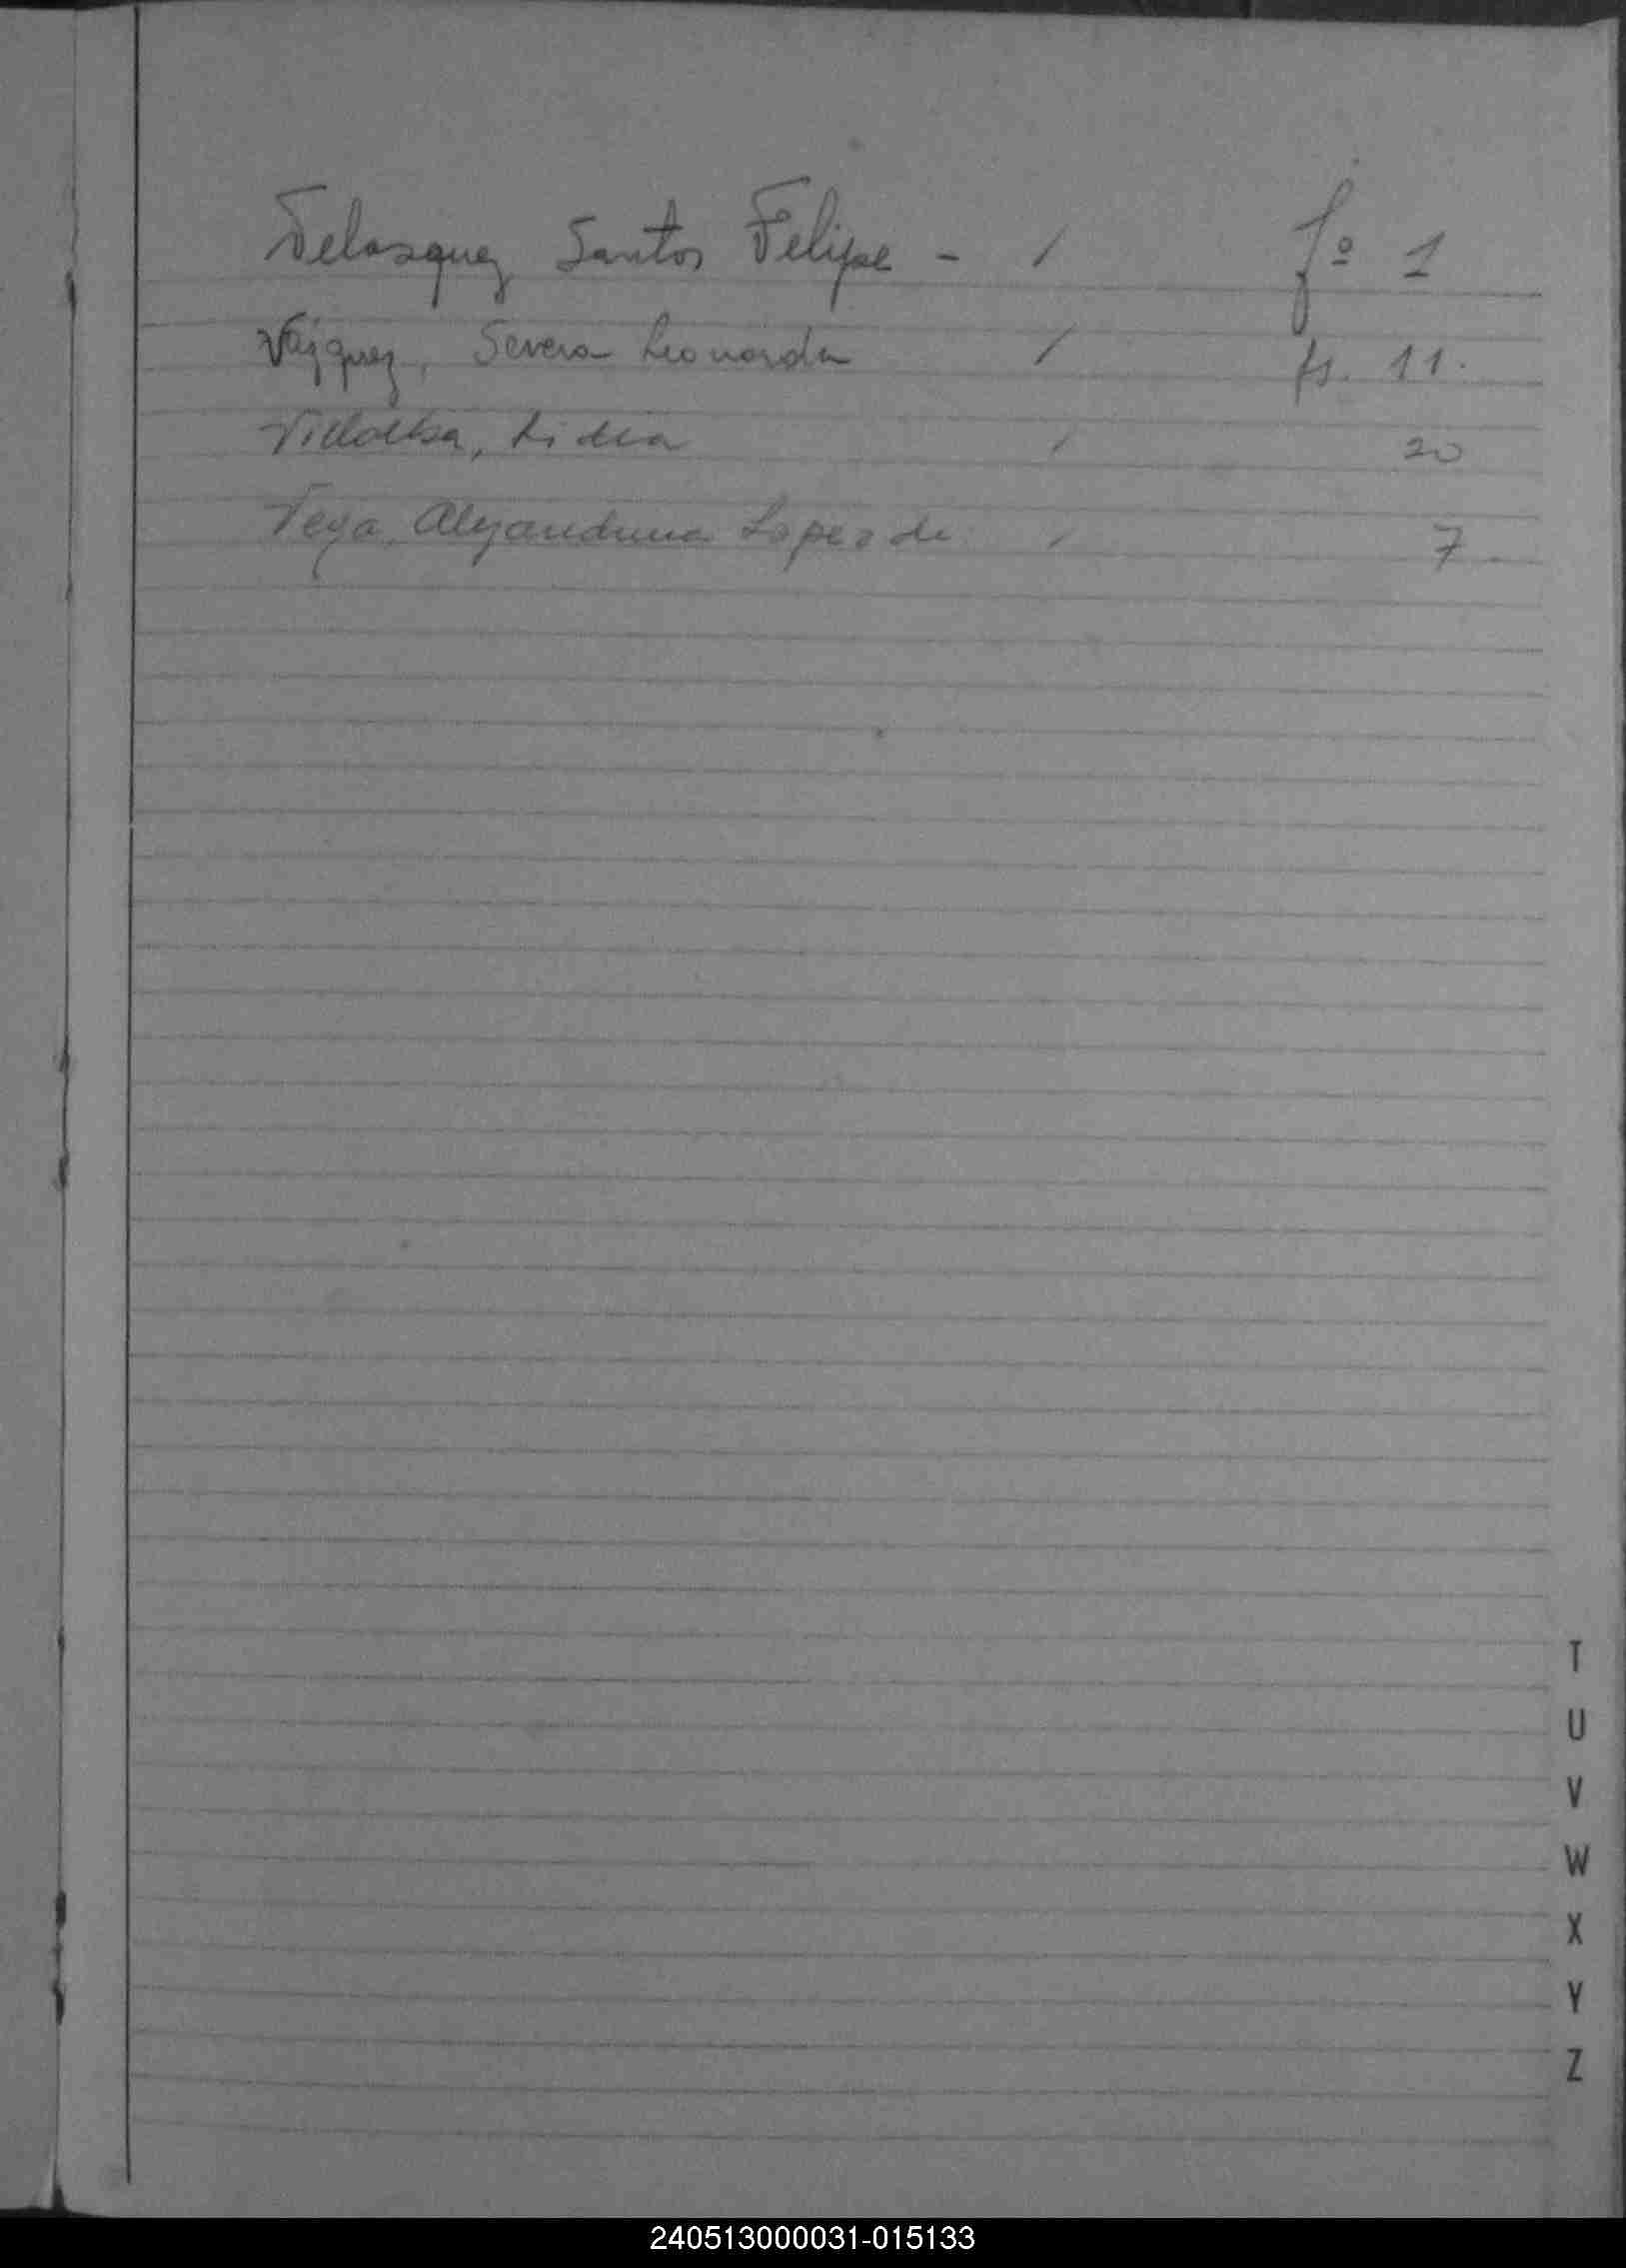 Velasquez Santos Felipe - / fº 1
Vázquez, Severa Leonarda / fs. 11.
Villalba, Lidia / 20
Vega Alejandrina Lopez de / 7
T
U
V
W
X
Y
Z
240513000031-015133